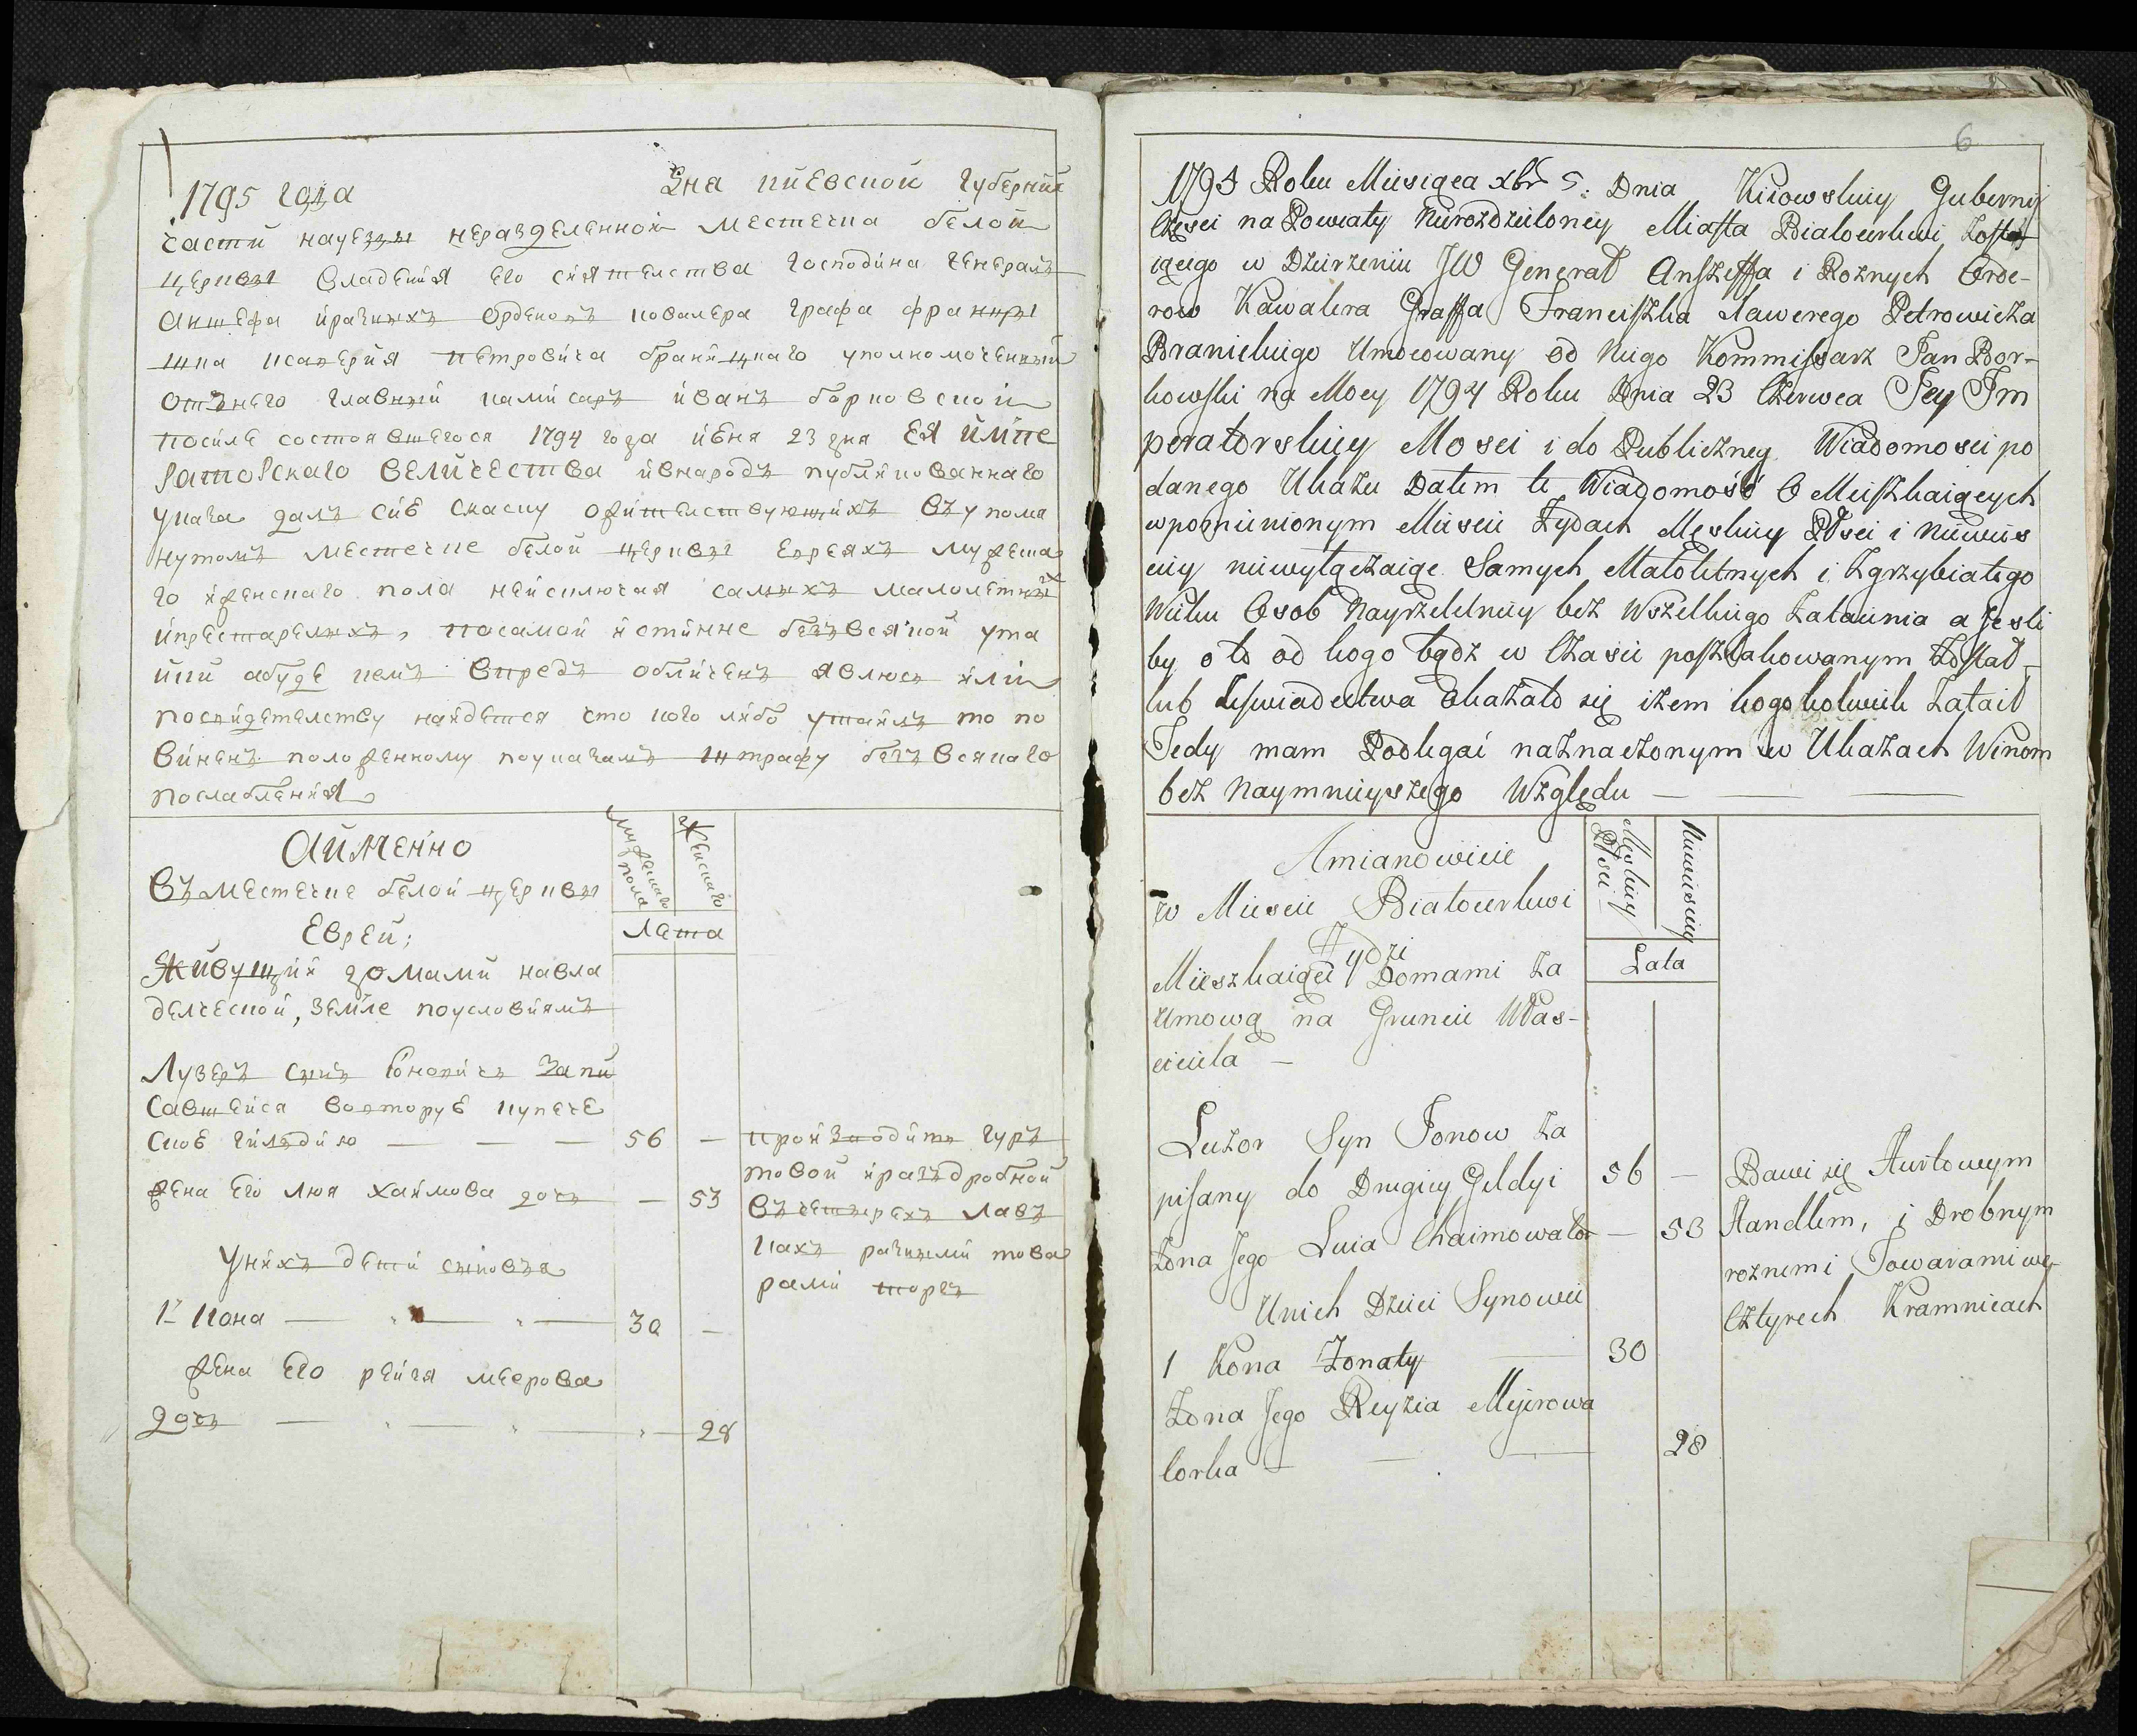 1795 года дня киевской губернии
части науезды неразделенной местечка белой
церквы владения его сиятелства господина генералъ
аншефа иразныхъ орденовъ ковалера графа францы
шка ксаверия петровича браницкаго уполномоченный
отънего главный камисаръ иванъ борковской
посиле состоявшегося 1794 года июня 23 дня ЕЯ ИМПЕ
РАТОРСКАГО ВЕЛИЧЕСТВА ивнародъ публикованнаго
указа далъ сию скаску ожителствующихъ въупомя
нутомъ местечке белой церквы евреяхъ мужеска
го иженскаго пола неисключая самыхъ малолетныхъ
ипрестарелыхъ, посамой истинне безъвсякой ута
йки абуде кемъ впредь обличенъ явлюсь или
посвидетелству найдется что кого либо утаилъ то по
виненъ положенному поуказамъ штрафу безъ всякаго
послабления
Аименно
Въместечке белой церквы
Еврей;
Живущий домами навла
делческой, земле поусловиямъ
мужескаго пола
Женскаго
Лета
Лузеръ сынъ Ионовичь Запи
савшейся вовторую купече
скою гилдию — — — 56 —
жена Его Люя хаимова дочь — 53
производитъ гур
товой иразъдробной
въчетырехъ лав
кахъ разными това
рами торгъ
Унихъ дети сыновья
1й Кона — — — 30 —
жена Его рейзя меерова
дочь — — — 28
6
1795 Roku Miesiąca xbr 5: Dnia Kiiowskiey Gubernij
Części na Powiaty Nierozdzieloney Miasta Białocerkwi Zosta
iącego w Dzierżeniu JW Generał Anszeffa i Rożnych Orde-
row Kawalera Graffa Franciszka Xawerego Petrowicza
Branickiego Umocowany od Niego Kommissarz Jan Bor-
kowski na Mocy 1794 Roku Dnia 23 Czerwca Jey Im
peratorskiey Mosci i do Publiczney Wiadomosci po
danego Ukazu Datem te Wiadomość O Mieszkaiących
wpomnienionym Miescie Żydach Męskiey Płsci i Niewies
ciey niewyłączaiąc Samych Małoletnych i Zgrzybiałego
Wieku Osob Nayrzetelniey bez Wszelkiego Zataienia a Jesli
by o to od kogo bądz w Czasie poszlakowanym Został
lub Zeswiadectwa Okazało się iżem kogokolwiek Zataił
Tedy mam Podlegać naznaczonym w Ukazach Winom
bez Naymnieyszego Względu — — —
Amianowicie
w Miescie Białocerkwi
Żydzi
Mieszkaiący Domami za
Umową na Gruncie Włas-
ciciela —
Męskiey Płsci
Niewiesciey
Lata
Luzor Syn Jonow Za
pisany do Drugiey Gildyi 56 —
Żona Jego Luia Chaimowa Cor — 53
Bawi się Hurtowym
Handlem, i Drobnym
rożnemi Towarami we
Cztyrech Kramnicach
Unich Dzieci Synowie
1 Kona Żonaty — 30
Żona Jego Reyzia Mejerowa
Corka — — — 28